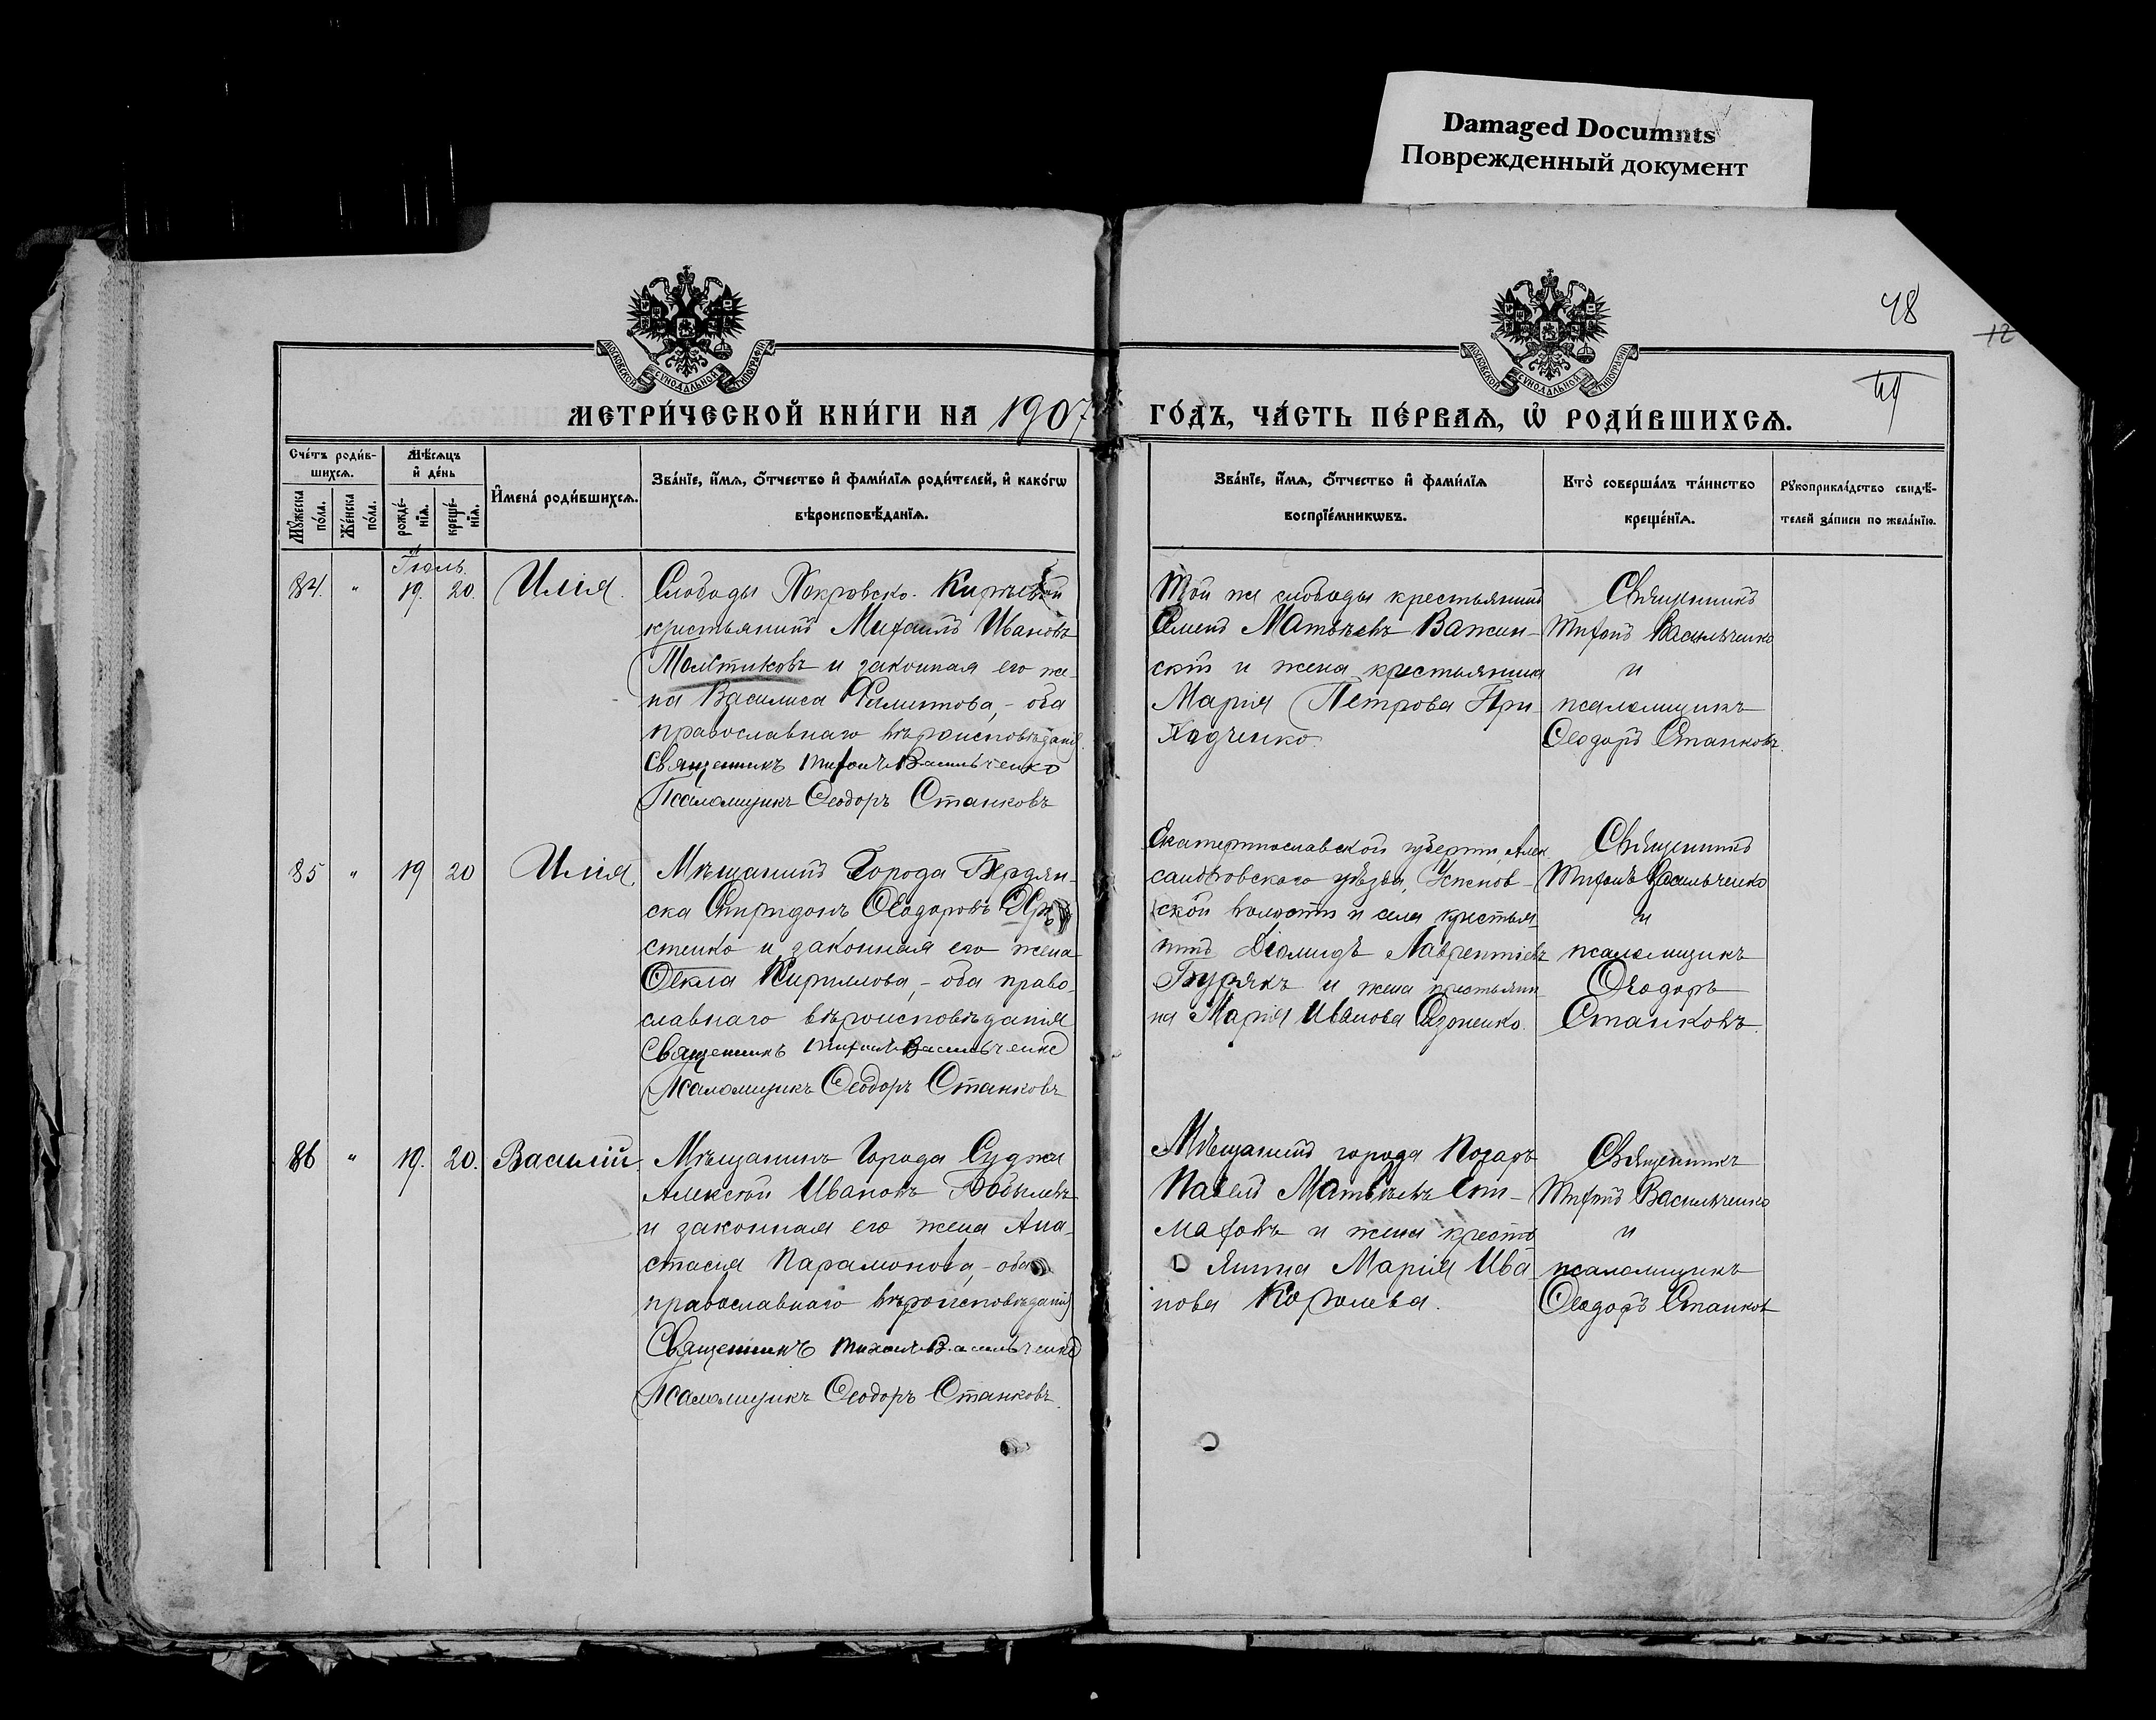 Damaged Documnts
Поврежденный документ
48
12
МОСКОВСКОЙ СѴНОДАЛЬНОЙ ТИПОГРАФІИ
МОСКОВСКОЙ СѴНОДАЛЬНОЙ ТИПОГРАФІИ
МЕТРИ́ЧЕСКОЙ КНИ́ГИ НА 1907
ГО́ДЪ, ЧА́СТЬ ПЕ́РВАѦ, Ѡ҆ РОДИ́ВШИХСѦ.
Сче́тъ роди́в-
шихсѧ.
Мѣ́сѧцъ
и҆ де́нь
Мꙋ́жеска по́ла.
Же́нска по́ла.
рожде́-
нїѧ.
креще́-
нїѧ.
И҆мена̀ роди́вшихсѧ.
Зва́нїе, и҆́мѧ, ѻ҆́тчество и҆ фами́лїѧ роди́телей, и҆ како́гѡ
вѣроисповѣ́данїѧ.
Зва́нїе, и҆́мѧ, ѻ҆́тчество и҆ фами́лїѧ
воспрїе́мникѡвъ.
Кто̀ соверша́лъ та́инство
креще́нїѧ.
Рꙋкоприкла́дство свидѣ́-
телей за́писи по жела́нїю.
Іюль.
84. " 19. 20. Илія.
Слободы Покровско-Киреевой
крестьянинъ Михаилъ Ивановъ
и законная его же-
на Василиса Филиппова,- оба
православнаго вѣроисповѣданія.
Священникъ Тихонъ Васильченко
Псаломщикъ Ѳеодоръ Станковъ
Той же слободы крестьянинъ
Семенъ Матвѣевъ Важин-
скій и жена крестьянина
Марія Петрова При-
ходченко.
Священникъ
Тихонъ Васильченко
и
псаломщикъ
Ѳеодоръ Станковъ.
85 " 19 20 Илія.
Мѣщанинъ Города Бердян-
ска Спиридонъ Ѳеодоровъ
стенко и законная его жена
Ѳекла Кириллова,- оба право-
славнаго вѣроисповѣданія
Священникъ Тихонъ Васильченко
Псаломщикъ Ѳеодоръ Станковъ
Екатеринославской губерніи, Алек-
сандровского уѣзда, Успенов-
ской волости и села крестья-
нинъ Діомидъ Лаврентіевъ
Бурякъ и жена крестьяни-
на Марія Иванова Сазоненко.
Священникъ
Тихонъ Васильченко
и
псаломщикъ
Ѳеодоръ
Станковъ.
86 " 19. 20. Василій
Мѣщанинъ Города Суджи
Алексѣй Ивановъ Бобылевъ
и законная его жена Ана-
стасія Парамонова,- оба
православнаго вѣроисповѣданія
Священникъ Тихонъ Васильченко
Псаломщикъ Ѳеодоръ Станковъ.
Мѣщанинъ города Погаръ
Павелъ Матвѣевъ
и жена кресть-
янина Марія Ива-
нова Королева.
Священникъ
Тихонъ Васильченко
и
псаломщикъ
Ѳеодоръ Станковъ